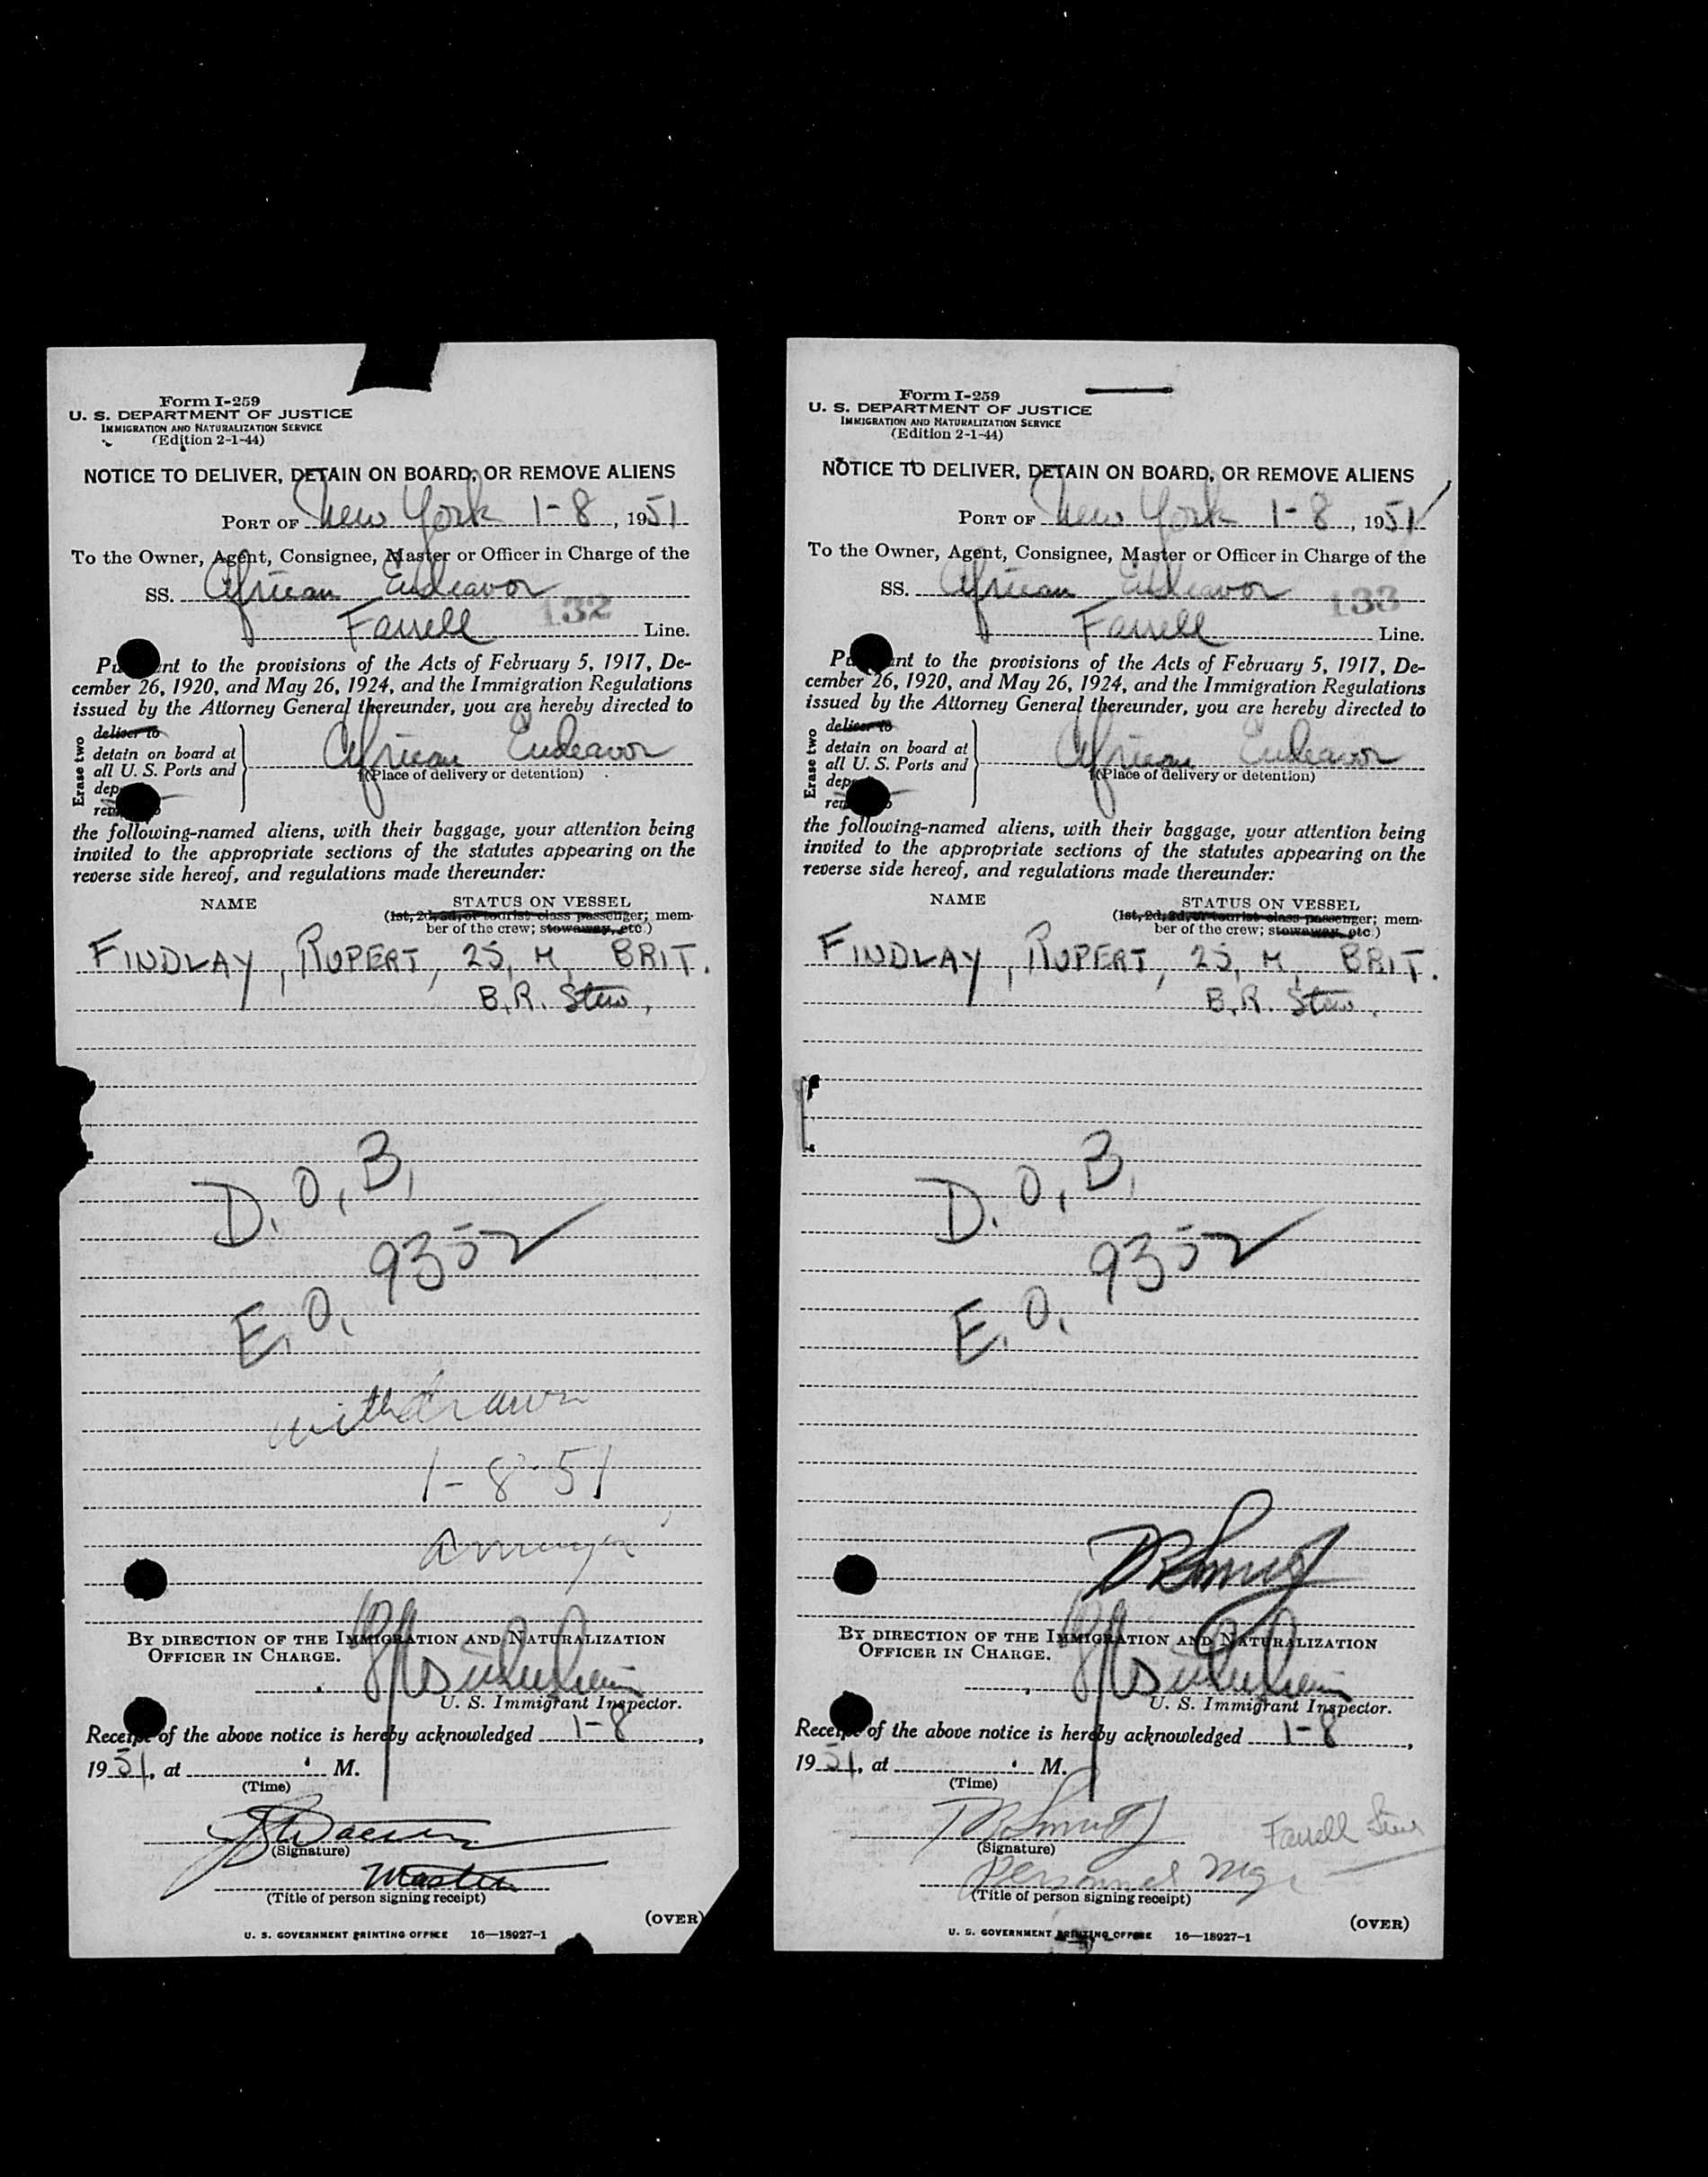 Form I-259
U. S. DEPARTMENT OF JUSTICE
IMMIGRATION AND NATURALIZATION SERVICE
(Edition 2-1-44)
NOTICE TO DELIVER, DETAIN ON BOARD, OR REMOVE ALIENS
PORT OF New York 1-8, 1951
To the Owner, Agent, Consignee, Master or Officer in Charge of the
SS. African Endeavor
132
Farrell Line.
Pu nt to the provisions of the Acts of February 5, 1917, De-
cember 26, 1920, and May 26, 1924, and the Immigration Regulations
issued by the Attorney General thereunder, you are hereby directed to
Erase two
deliver to
detain on board at
all U. S. Ports and
dep
rem
African Endeavor
(Place of delivery or detention)
the following-named aliens, with their baggage, your attention being
invited to the appropriate sections of the statutes appearing on the
reverse side hereof, and regulations made thereunder:
NAME
STATUS ON VESSEL
(1st, 2d, 3d, or tourist class passenger; mem-
ber of the crew; stowaway, etc.)
FINDLAY, RUPERT, 25, M, BRIT.
B.R. Stew,
D.O.B.
E.O. 9352
withdrawn
1-8-51
BY DIRECTION OF THE IMMIGRATION AND NATURALIZATION
OFFICER IN CHARGE.
U. S. Immigrant Inspector.
Receipt of the above notice is hereby acknowledged 1-8,
1951, at M.
(Time)
(Signature)
Master
(Title of person signing receipt)
(OVER)
U. S. GOVERNMENT PRINTING OFFICE 16—18927-1
Form I-259
U. S. DEPARTMENT OF JUSTICE
IMMIGRATION AND NATURALIZATION SERVICE
(Edition 2-1-44)
NOTICE TO DELIVER, DETAIN ON BOARD, OR REMOVE ALIENS
PORT OF New York 1-8, 1951
To the Owner, Agent, Consignee, Master or Officer in Charge of the
SS. African Endeavor
133
Farrell Line.
Pu ant to the provisions of the Acts of February 5, 1917, De-
cember 26, 1920, and May 26, 1924, and the Immigration Regulations
issued by the Attorney General thereunder, you are hereby directed to
Erase two
deliver to
detain on board at
all U. S. Ports and
dep
rem
African Endeavor
(Place of delivery or detention)
the following-named aliens, with their baggage, your attention being
invited to the appropriate sections of the statutes appearing on the
reverse side hereof, and regulations made thereunder:
NAME
STATUS ON VESSEL
(1st, 2d, 3d, or tourist class passenger; mem-
ber of the crew; stowaway, etc.)
FINDLAY, RUPERT, 25, M, BRIT.
B.R. Stew,
D.O.B.
E.O. 9352
BY DIRECTION OF THE IMMIGRATION AND NATURALIZATION
OFFICER IN CHARGE.
U. S. Immigrant Inspector.
Receipt of the above notice is hereby acknowledged 1-8,
1951, at M.
(Time)
Farrell Lines
(Signature)
Personnel Mgr
(Title of person signing receipt)
(OVER)
U. S. GOVERNMENT PRINTING OFFICE 16—18927-1